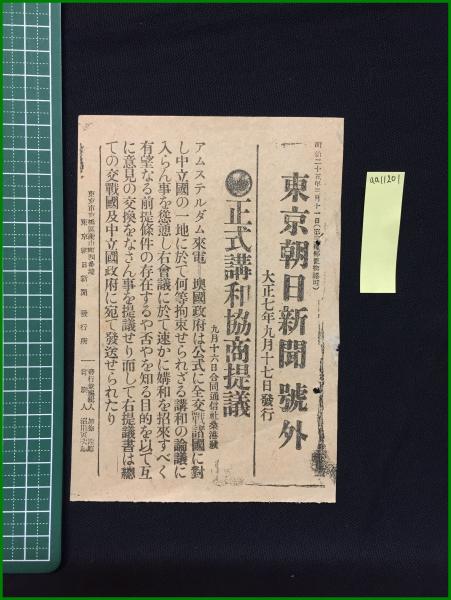 東京朝日新聞 號外
大正七年九月十七日發行
正式講和協商提議
九月十六日合同通信社桑港發
アムステルダム來電――墺國政府は公式に全交戰諸國に對
し中立國の一地に於て何等拘束せられざる講和の論議に
入らん事を慫慂し右會議に於て速かに媾和を招來すべく
有望なる前提條件の存在するや否やを知る目的を以て互
に意見の交換をなさん事を提議せり而して右提議書は總
ての交戰國及中立國政府に宛て發送せられたり
東京朝日新聞發行所
aa11201